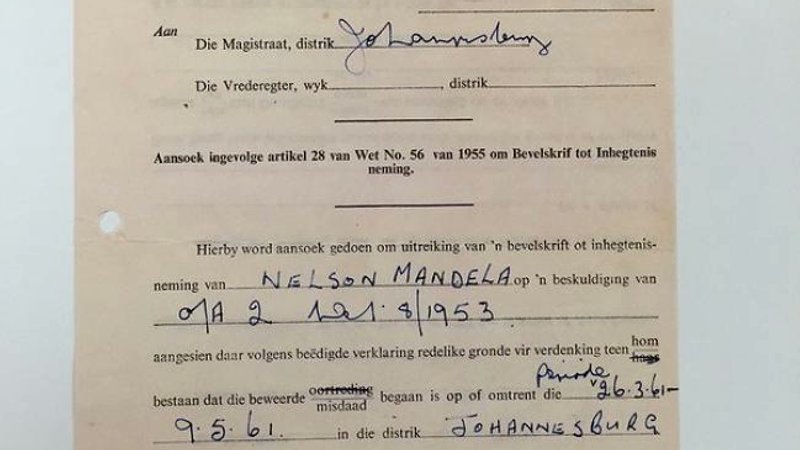 Aan
Die Magistraat, distrik Johannesburg
Die Vrederegter, wyk , distrik
Aansoek ingevolge artikel 28 van Wet No. 56 van 1955 om Bevelskrif tot Inhegtenis
neming.
Hierby word aansoek gedoen om uitreiking van 'n bevelskrift ot inhegtenis-
neming van NELSON MANDELA op 'n beskuldiging van
o/A 2 Wet 8/1953
aangesien daar volgens beëdigde verklaring redelike gronde vir verdenking teen hom haar
bestaan dat die beweerde oortreding misdaad begaan is op of omtrent die periode 26.3.61-
9.5.61. in die distrik JOHANNESBURG